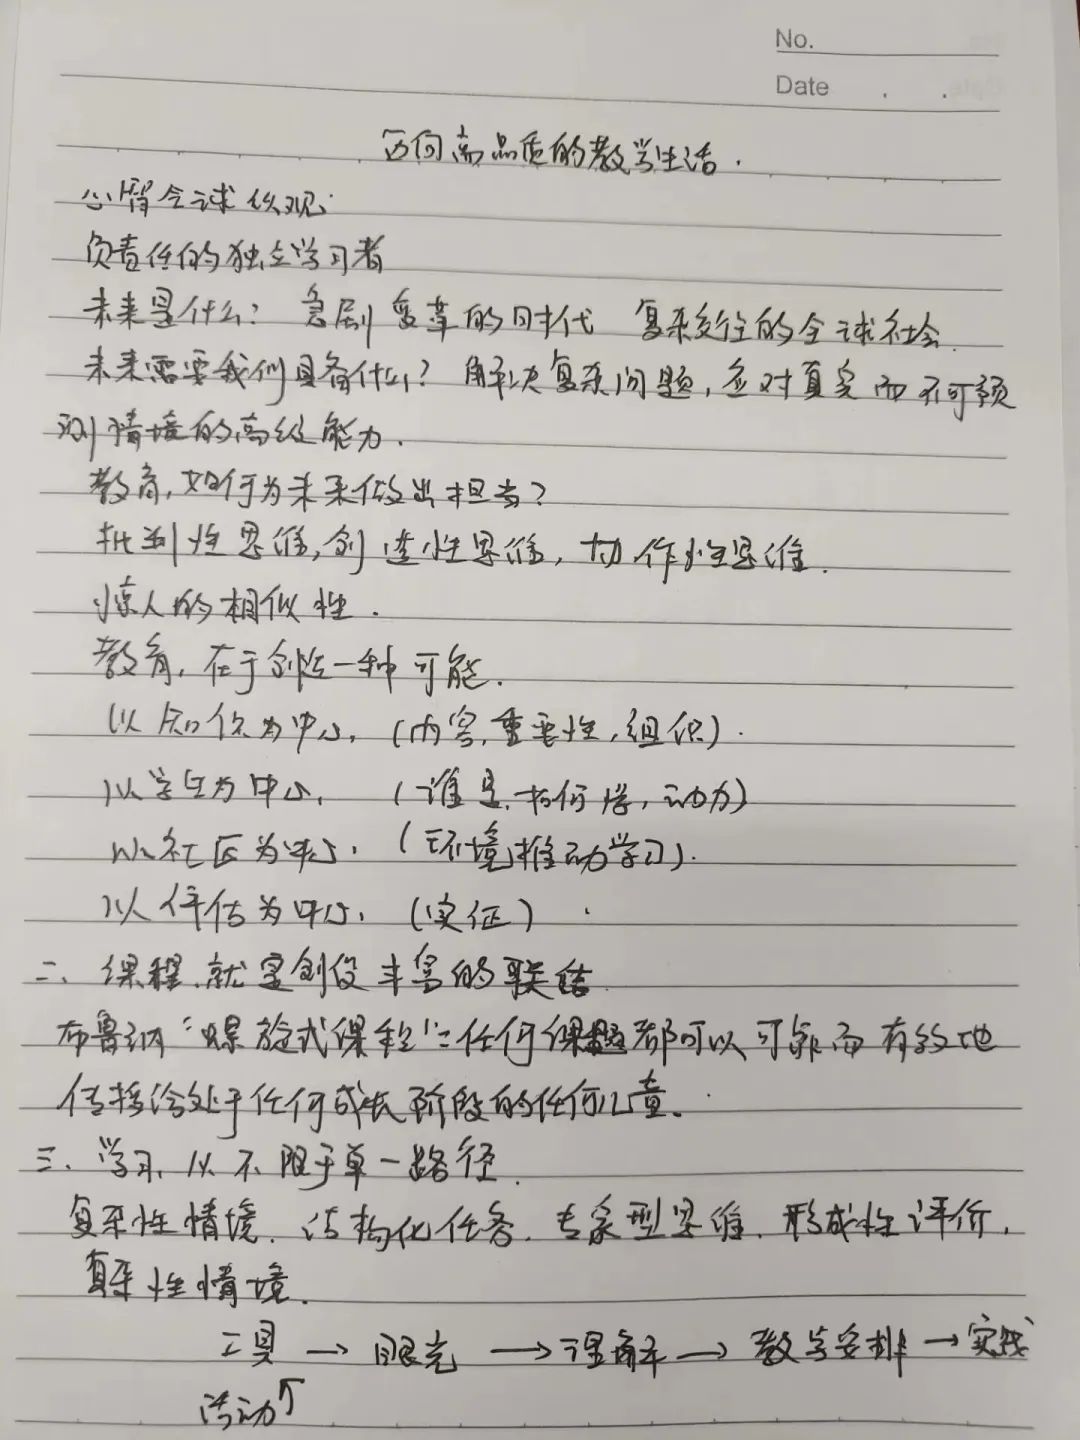 No.
Date
迈向高品质的教学生活.
心智全球化观.
负责任的独立学习者
未来是什么? 急剧变革的时代 复杂交往的全球社会.
未来需要我们具备什么? 解决复杂问题,应对真实而不可预
测情境的高级能力.
教育,如何为未来做出担当?
批判性思维,创造性思维,协作性思维.
惊人的相似性.
教育,在于创造一种可能.
以知识为中心,(内容,重要性,组织).
以学生为中心,(谁是,如何学,动力)
以社区为中心,(环境推动学习).
以评估为中心,(实证)
二、课程,就是创设丰富的联结
布鲁纳“螺旋式课程”:任何课题都可以可靠而有效地
传授给处于任何成长阶段的任何儿童.
三、学习,从不限于单一路径.
复杂性情境.结构化任务.专家型思维.形成性评价.
复杂性情境.
工具→眼光→理解→教学安排→实践
活动↑